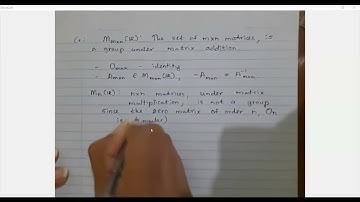 (c) M_{m×n}(ℝ): The set of m×n matrices, is
a group under matrix addition.
- O_{m×n} - identity
- -A_{m×n} ∈ M_{m×n}(ℝ), -A_{m×n} = A^{-1}_{m×n}
M_n(ℝ): n×n matrices, under matrix
multiplication, is not a group
Since the zero matrix of order n, O_n
is singular)